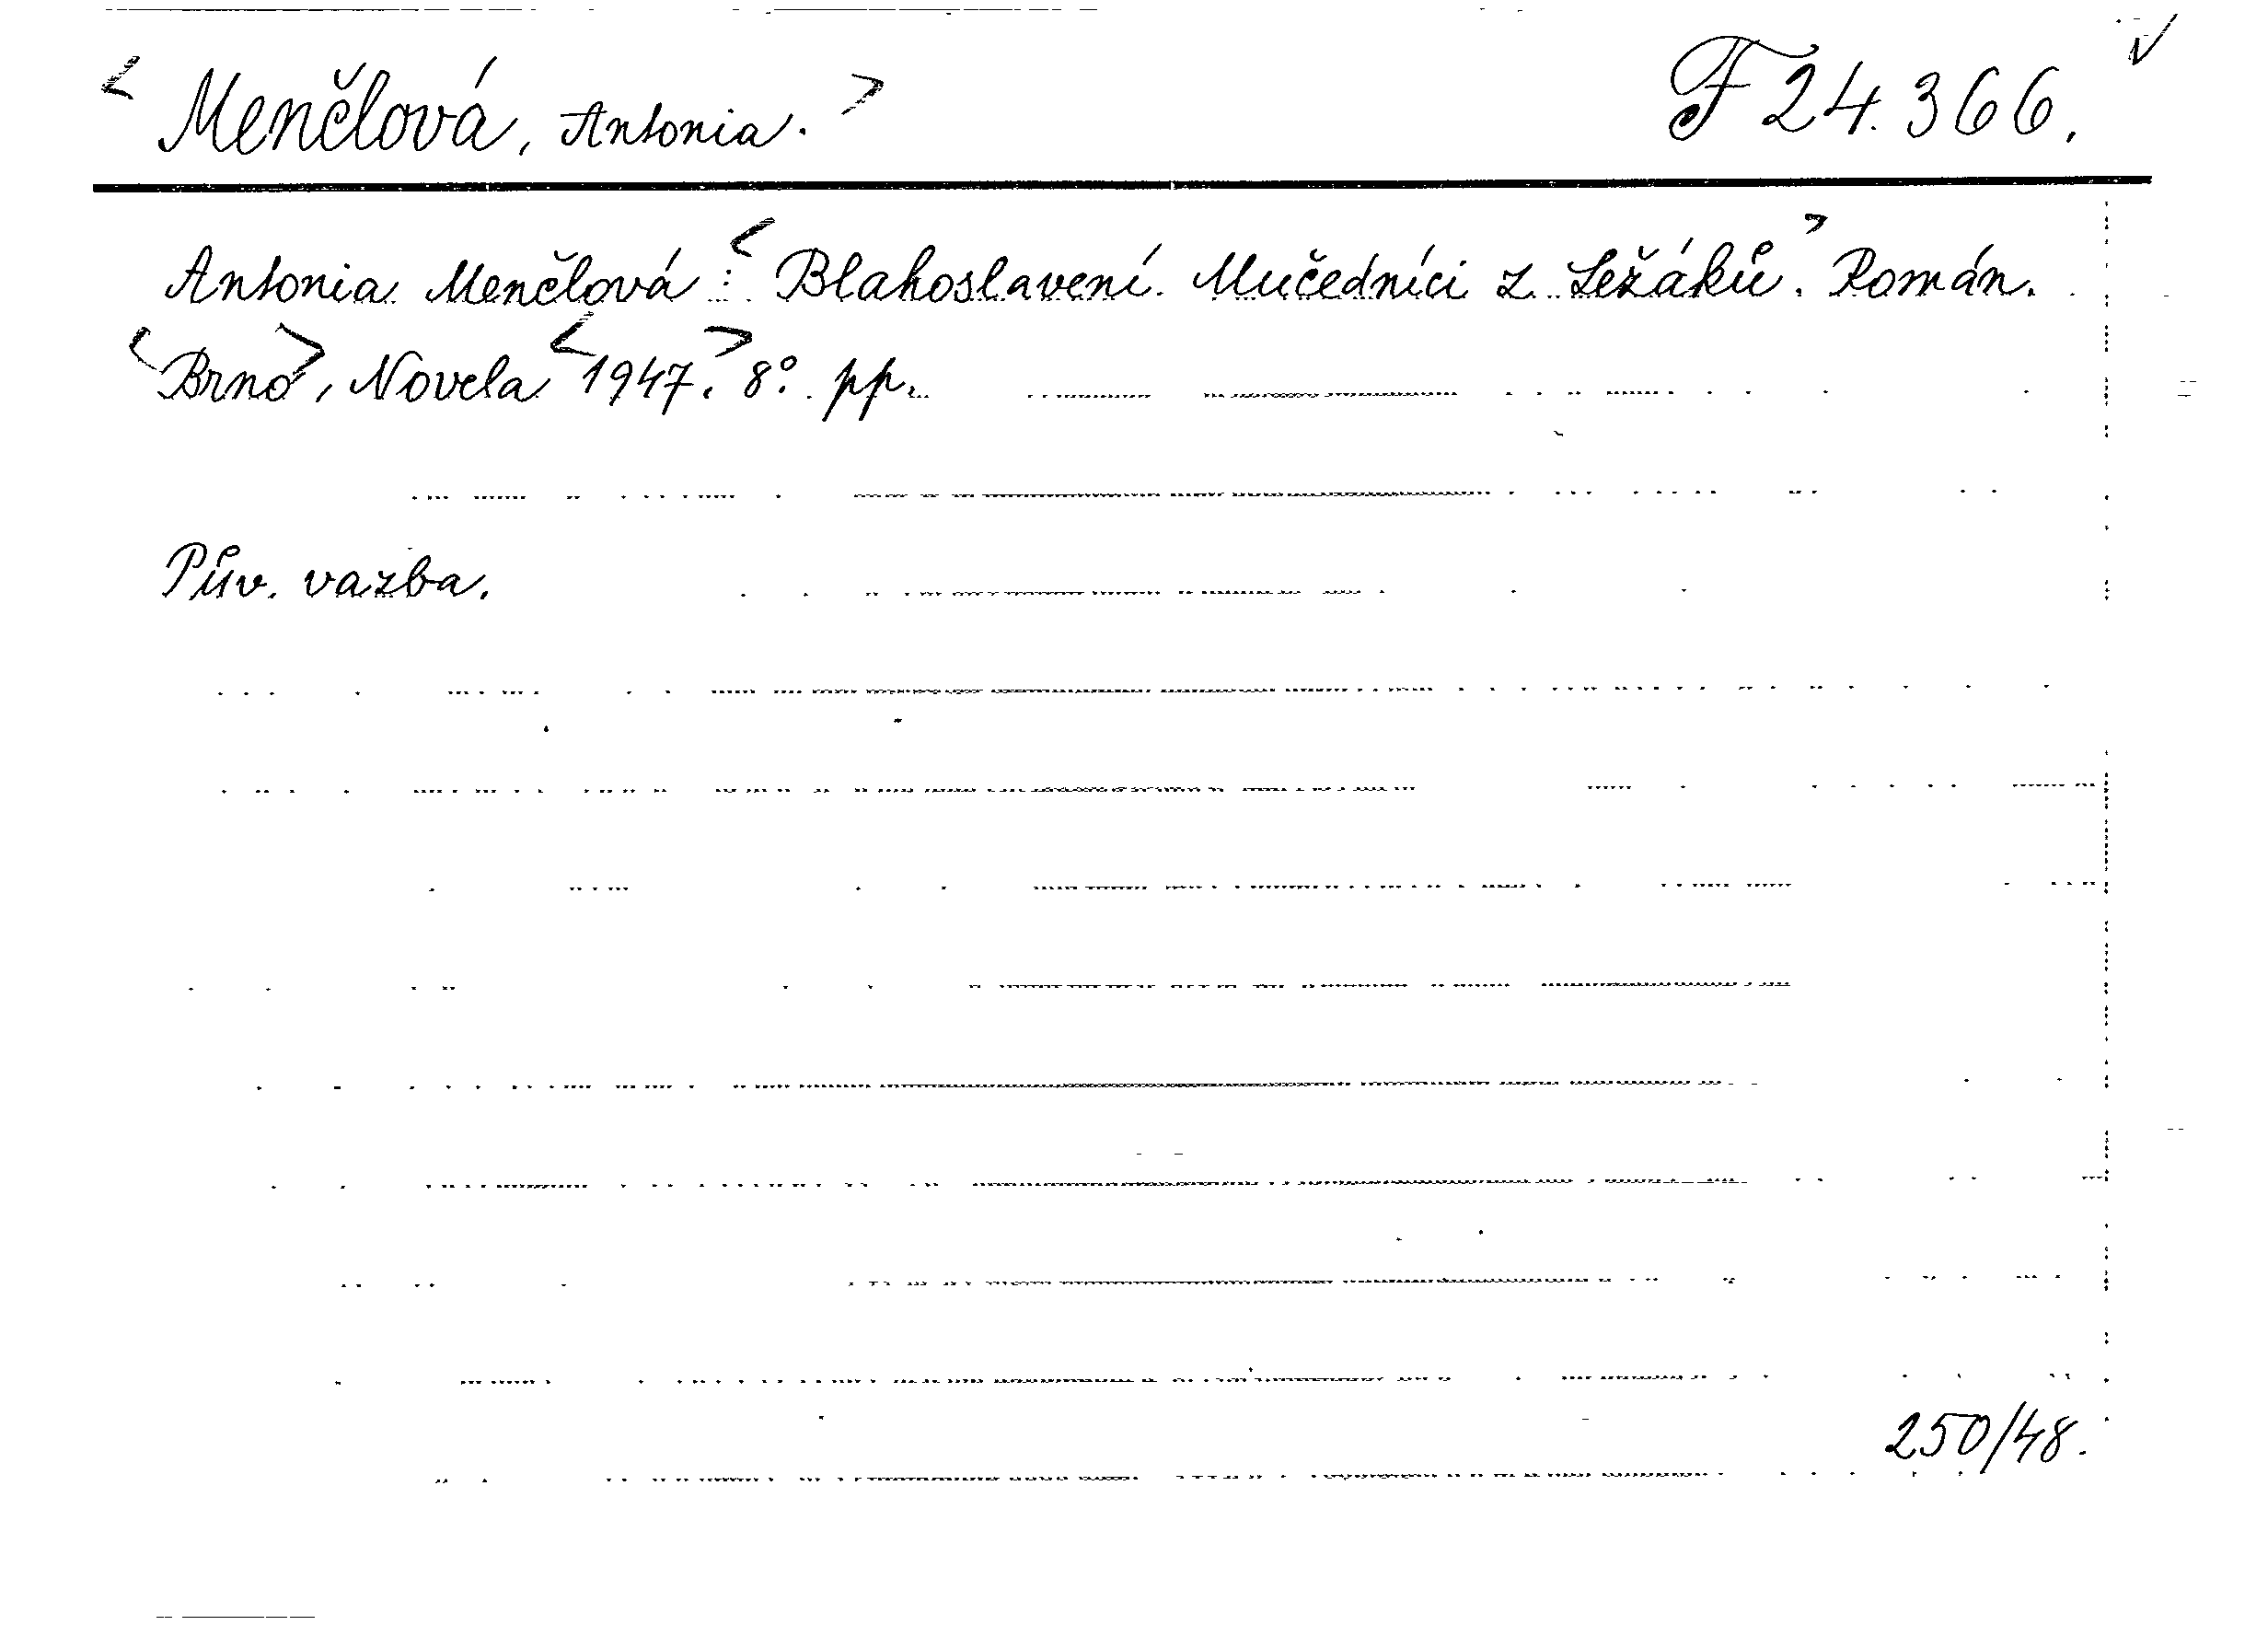 < Menčlová, Antonia. > F 24.366. ✓
Antonia Menčlová : < Blahoslavení. Mučedníci z Ležáků. > Román.
< Brno >, Novela < 1947. > 8° pp.
Pův. vazba.
250/48.